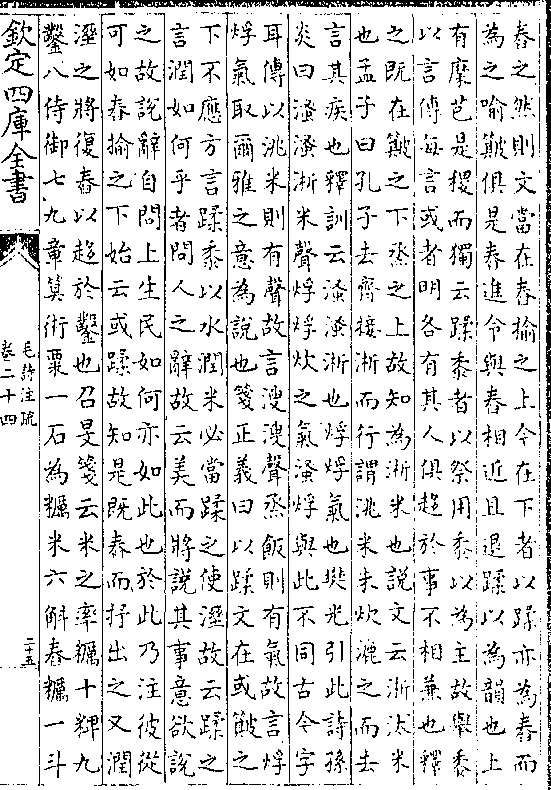 舂之然則文當在舂揄之上今在下者以蹂亦為舂而
為之喻簸俱是舂進令與舂相近且退蹂以為韻也上
有穈芑是稷而獨云蹂黍者以祭用黍以為主故舉黍
以言傳每言或者明各有其人俱趨於事不相兼也釋
之既在簸之下烝之上故知為淅米也說文云淅汰米
也孟子曰孔子去齊接淅而行謂洮米未炊漉之而去
言其疾也釋訓云溞溞淅也烰烰氣也樊光引此詩孫
炎曰溞溞淅米聲烰烰炊之氣溞烰與此不同古今字
耳傳以洮米則有聲故言溲溲聲烝飯則有氣故言烰
烰氣取爾雅之意為說也箋正義曰以蹂文在或簸之
下不應方言蹂黍以水潤米必當蹂之使溼故云蹂之
言潤如何乎者問人之辭故云美而將說其事意欲說
之故說辭自問上生民如何亦如此也於此乃注彼從
可如舂揄之下始云或蹂故知是既舂而抒出之又潤
溼之將復舂以趨於鑿也召旻箋云米之率糲十粺九
鑿八侍御七九章算術粟一石為糲米六斛舂糲一斗
欽定四庫全書
毛詩注疏
卷二十四
二十五